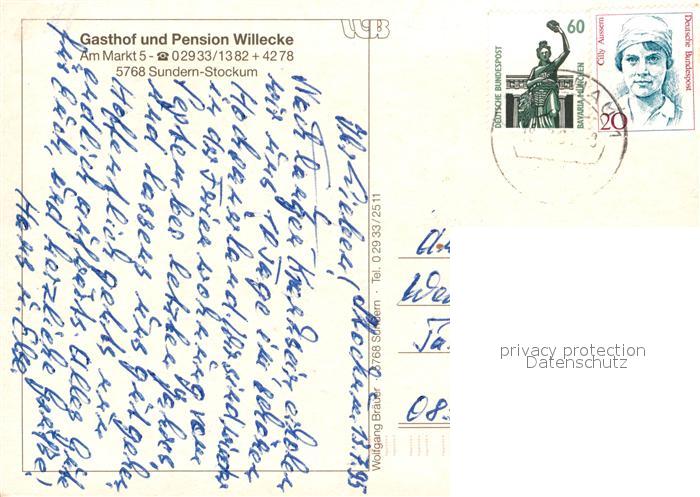 Gasthof und Pension Willecke
Am Markt 5 - ☎ 02933/1382 + 4278
5768 Sundern-Stockum
WB
60
DEUTSCHE BUNDESPOST
BAVARIA MÜNCHEN
Cilly Aussem
Deutsche Bundespost
20
Wolfgang Bräuer · 5768 Sundern · Tel. 0 29 33 / 25 11
Ihr Lieben! Stockum 13.7.95
Nach langer Krankheit, erholen
wir uns 10 Tage im schönen
Hochsauerland. Wir sind wieder
in der Ferienwohnung vom
September letzten Jahres
und lassen uns gut gehen.
Hoffentlich geht es nun
endlich aufwärts. Alles Gute
für Euch, und herzliche Grüße,
Hans u. Else
privacy protection
Datenschutz